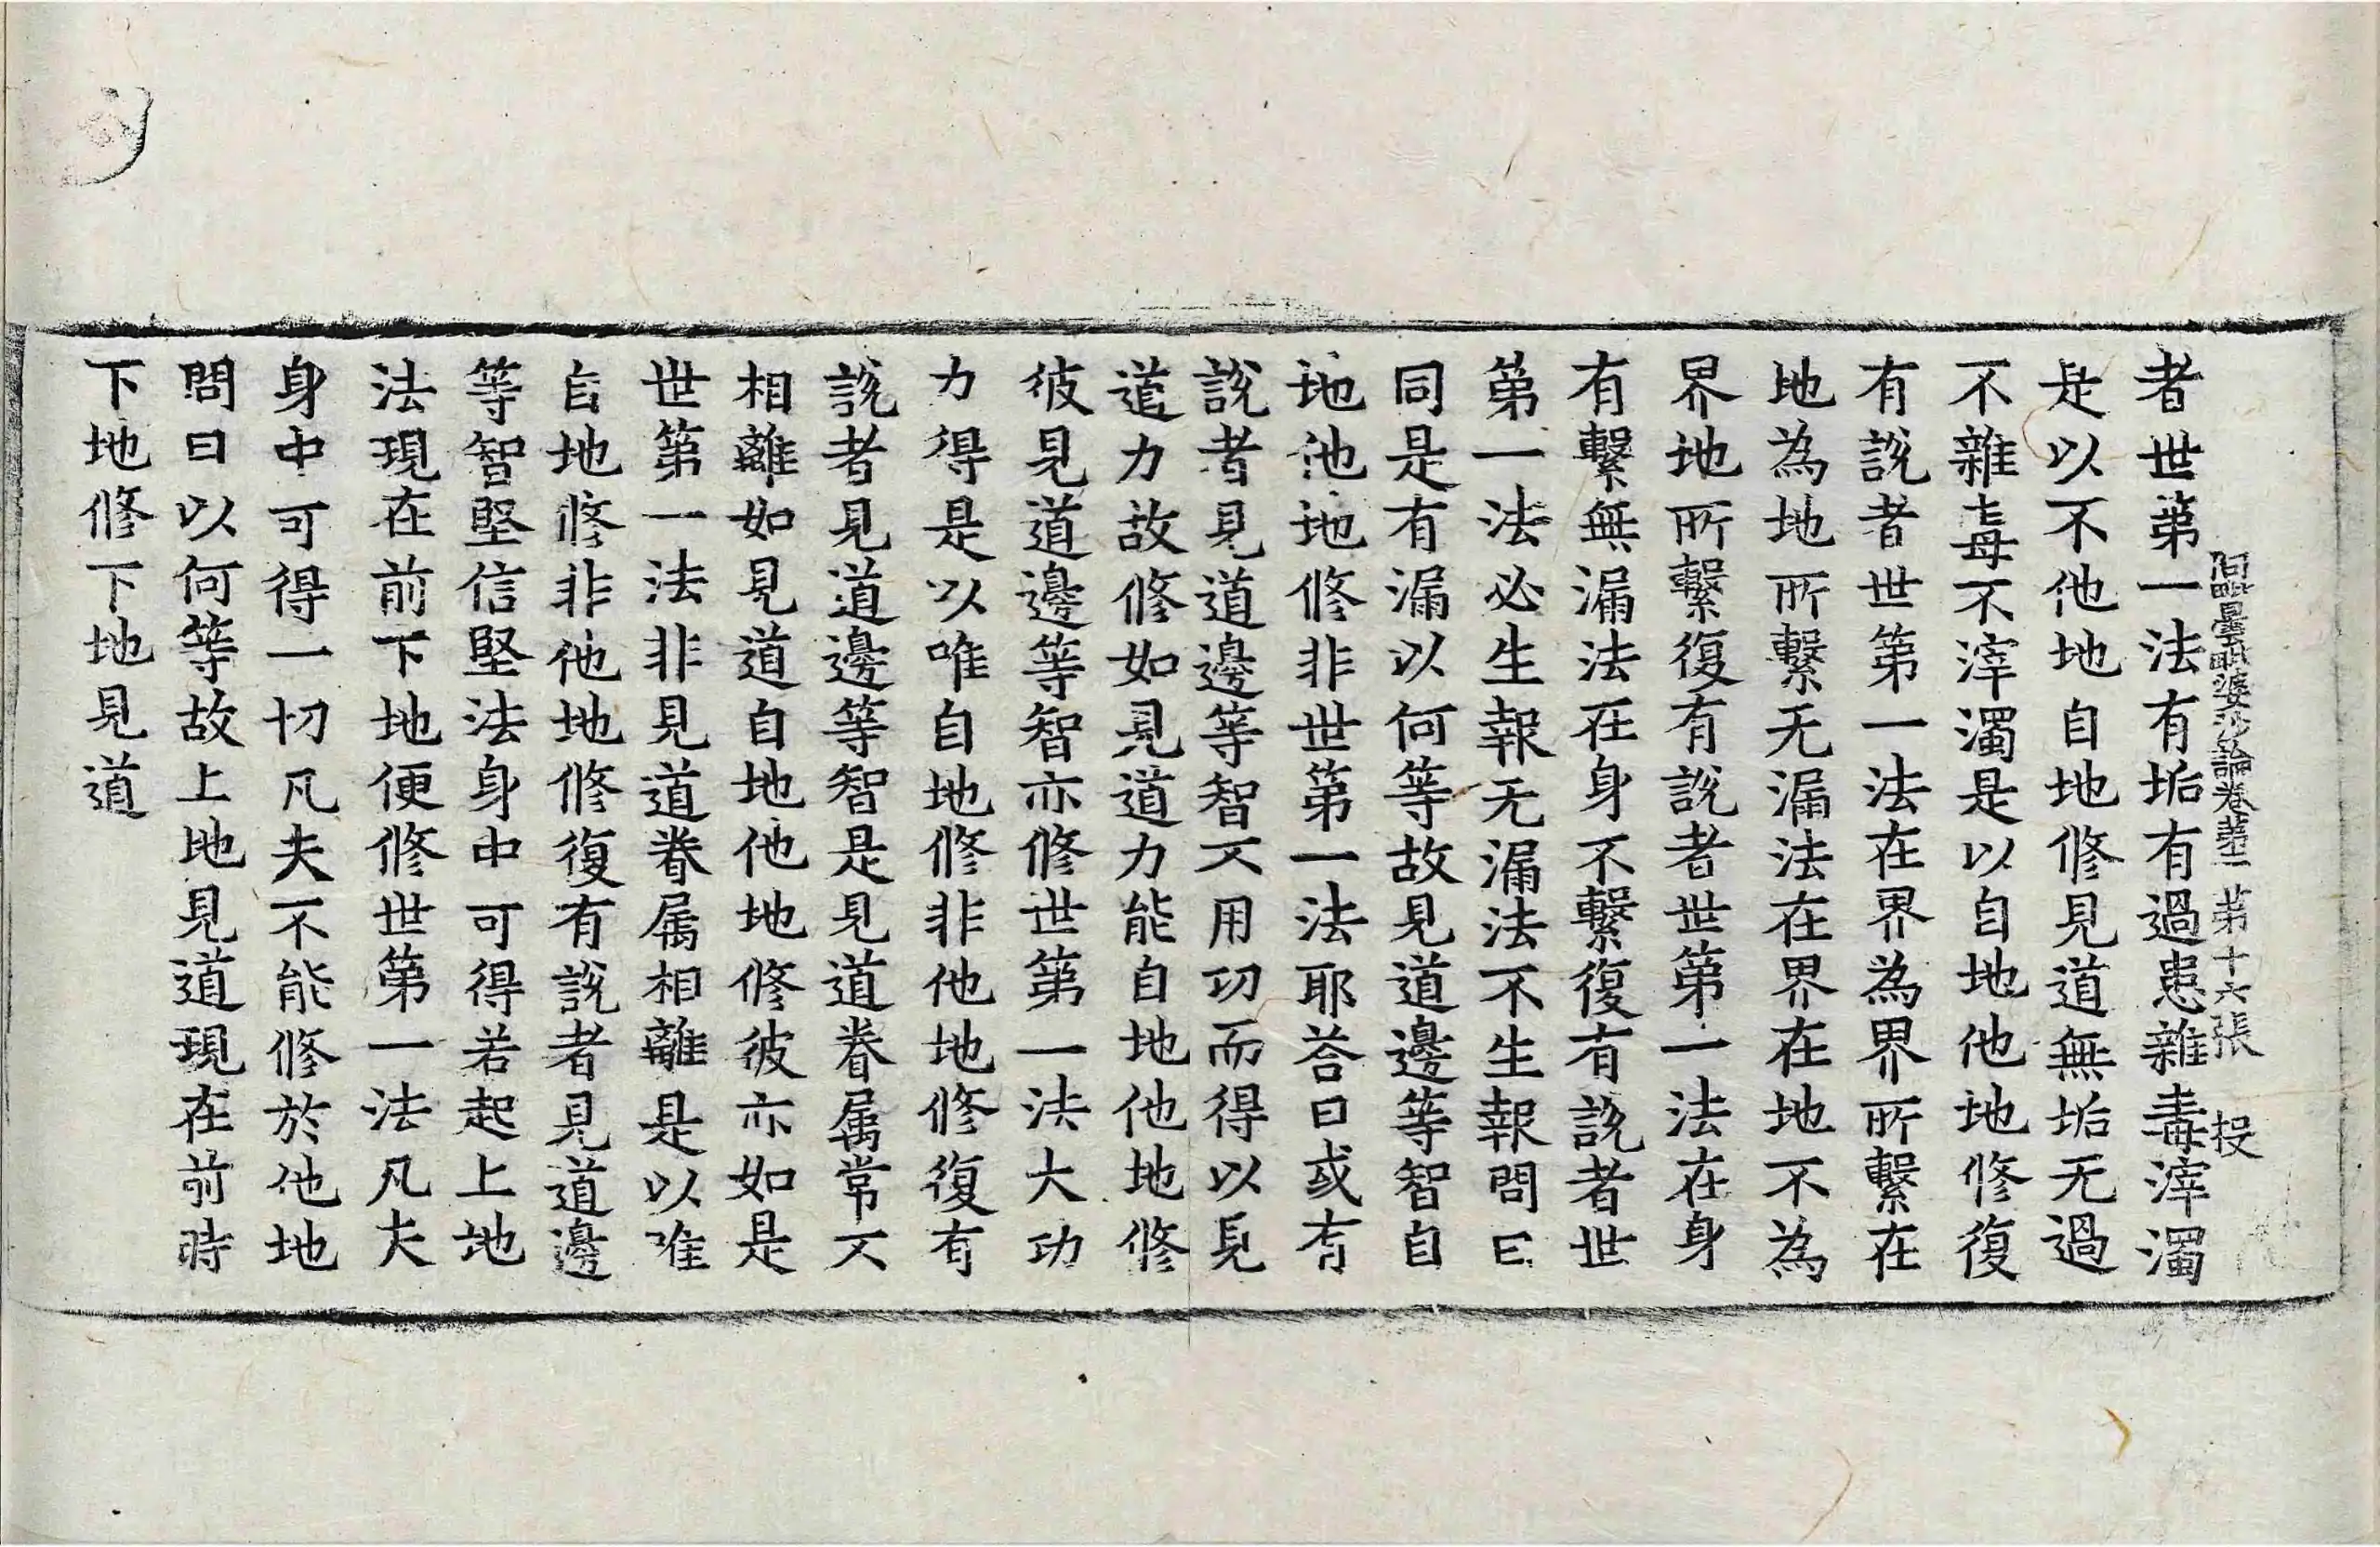 阿毗曇毗婆沙論卷第二 第十六張 投
者世第一法有垢有過患雜毒滓濁
是以不他地自地修見道無垢无過
不雜毒不滓濁是以自地他地修復
有說者世第一法在界為界所繫在
地為地所繫无漏法在界在地不為
界地所繫復有說者世第一法在身
有繫無漏法在身不繫復有說者世
第一法必生報无漏法不生報問曰
同是有漏以何等故見道邊等智自
地他地修非世第一法耶荅曰或有
說者見道邊等智不用功而得以見
道力故修如見道力能自地他地修
彼見道邊等智亦修世第一法大功
力得是以唯自地修非他地修復有
說者見道邊等智是見道眷属常不
相離如見道自地他地修彼亦如是
世第一法非見道眷属相離是以唯
自地修非他地修復有說者見道邊
等智堅信堅法身中可得若起上地
法現在前下地便修世第一法凡夫
身中可得一切凡夫不能修於他地
問曰以何等故上地見道現在前時
下地修下地見道